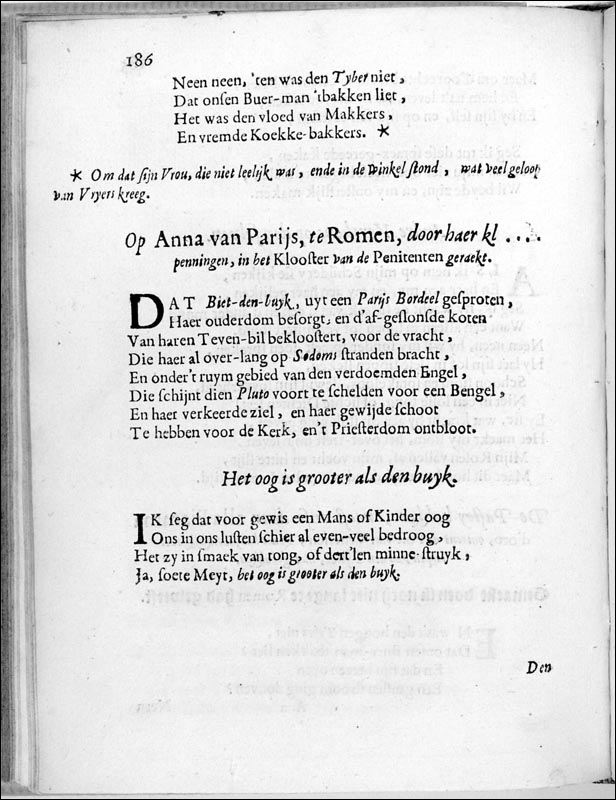 186
Neen neen, 'ten was den Tyber niet,
Dat onsen Buer-man 'tbakken liet,
Het was den vloed van Makkers,
En vremde Koekke-bakkers. *
* Om dat sijn Vrou, die niet leelijk was, ende in de Winkel stond, wat veel geloop
van Vryers kreeg.
Op Anna van Parijs, te Romen, door haer kl ....
penningen, in het Klooster van de Penitenten geraekt.
DAT Biet-den-buyk, uyt een Parijs Bordeel gesproten,
Haer ouderdom besorgt, en d'af-geslonsde koten
Van haren Teven-bil bekloostert, voor de vracht,
Die haer al over-lang op Sodoms stranden bracht,
En onder't ruym gebied van den verdoemden Engel,
Die schijnt dien Pluto voort te schelden voor een Bengel,
En haer verkeerde ziel, en haer gewijde schoot
Te hebben voor de Kerk, en't Priesterdom ontbloot.
Het oog is grooter als den buyk.
IK seg dat voor gewis een Mans of Kinder oog
Ons in ons lusten schier al even-veel bedroog,
Het zy in smaek van tong, of dert'len minne-struyk,
Ja, soete Meyt, het oog is grooter als den buyk.
Den